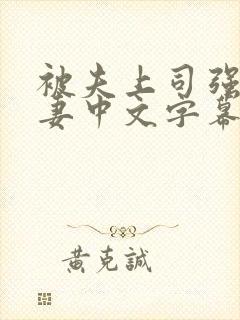 被夫上司强
妻中文字幕
黄克誠